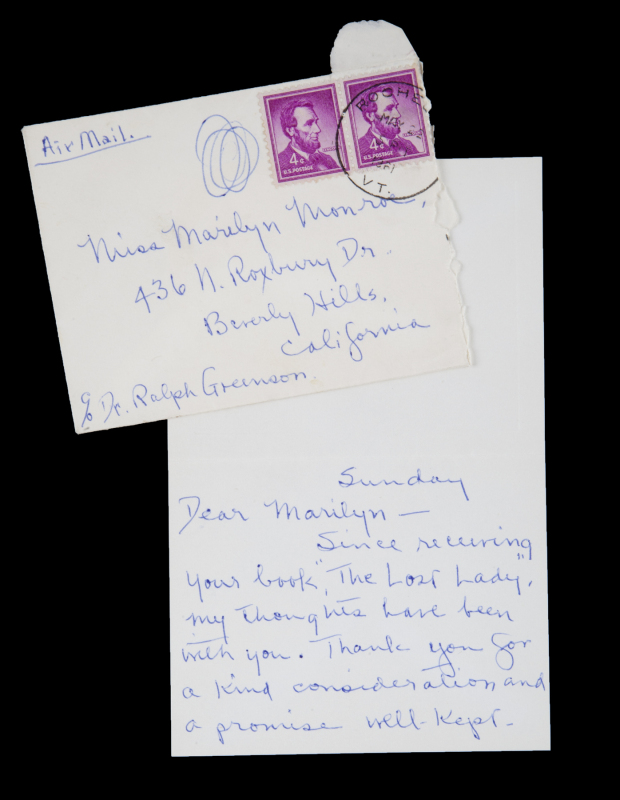 Air Mail.
4¢
U.S. POSTAGE
4¢
U.S. POSTAGE
VT.
Miss Marilyn Monroe,
436 N. Roxbury Dr.
Beverly Hills,
California
c/o Dr. Ralph Greenson.
Sunday
Dear Marilyn —
Since receiving
your book, "The Lost Lady",
my thoughts have been
with you. Thank you for
a kind consideration and
a promise well-kept -